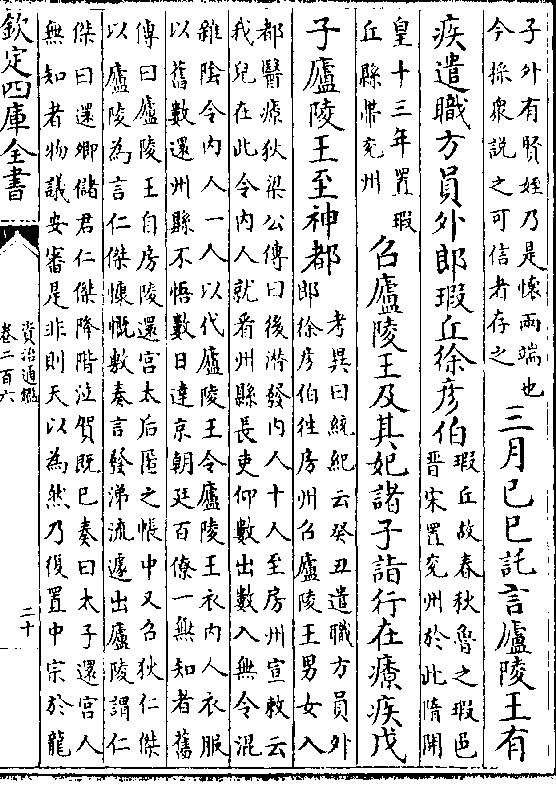 子外有賢姪乃是懷兩端也
今採衆説之可信者存之
三月己巳託言廬陵王有
疾遣職方員外郎瑕丘徐彦伯
瑕丘故春秋魯之瑕邑
晋宋置兖州於此隋開
皇十三年置瑕
丘縣帶兖州
召廬陵王及其妃諸子詣行在療疾戊
子廬陵王至神都
考異曰統紀云癸丑遣職方員外
郎徐彦伯往房州召廬陵王男女入
都醫療狄梁公傳曰後潜發内人十人至房州宣敕云
我兒在此令内人就看州縣長吏仰數出數入無令混
雜隂令内人一人以代廬陵王令廬陵王衣内人衣服
以舊數還州縣不悟數日達京朝廷百僚一無知者舊
傳曰廬陵王自房陵還宫太后匿之帳中又召狄仁傑
以廬陵為言仁傑慷慨敷奏言發涕流遽出廬陵謂仁
傑曰還卿儲君仁傑降階泣賀既已奏曰太子還宫人
無知者物議安審是非則天以為然乃復置中宗於龍
欽定四庫全書
資治通鑑
卷二百六
二十